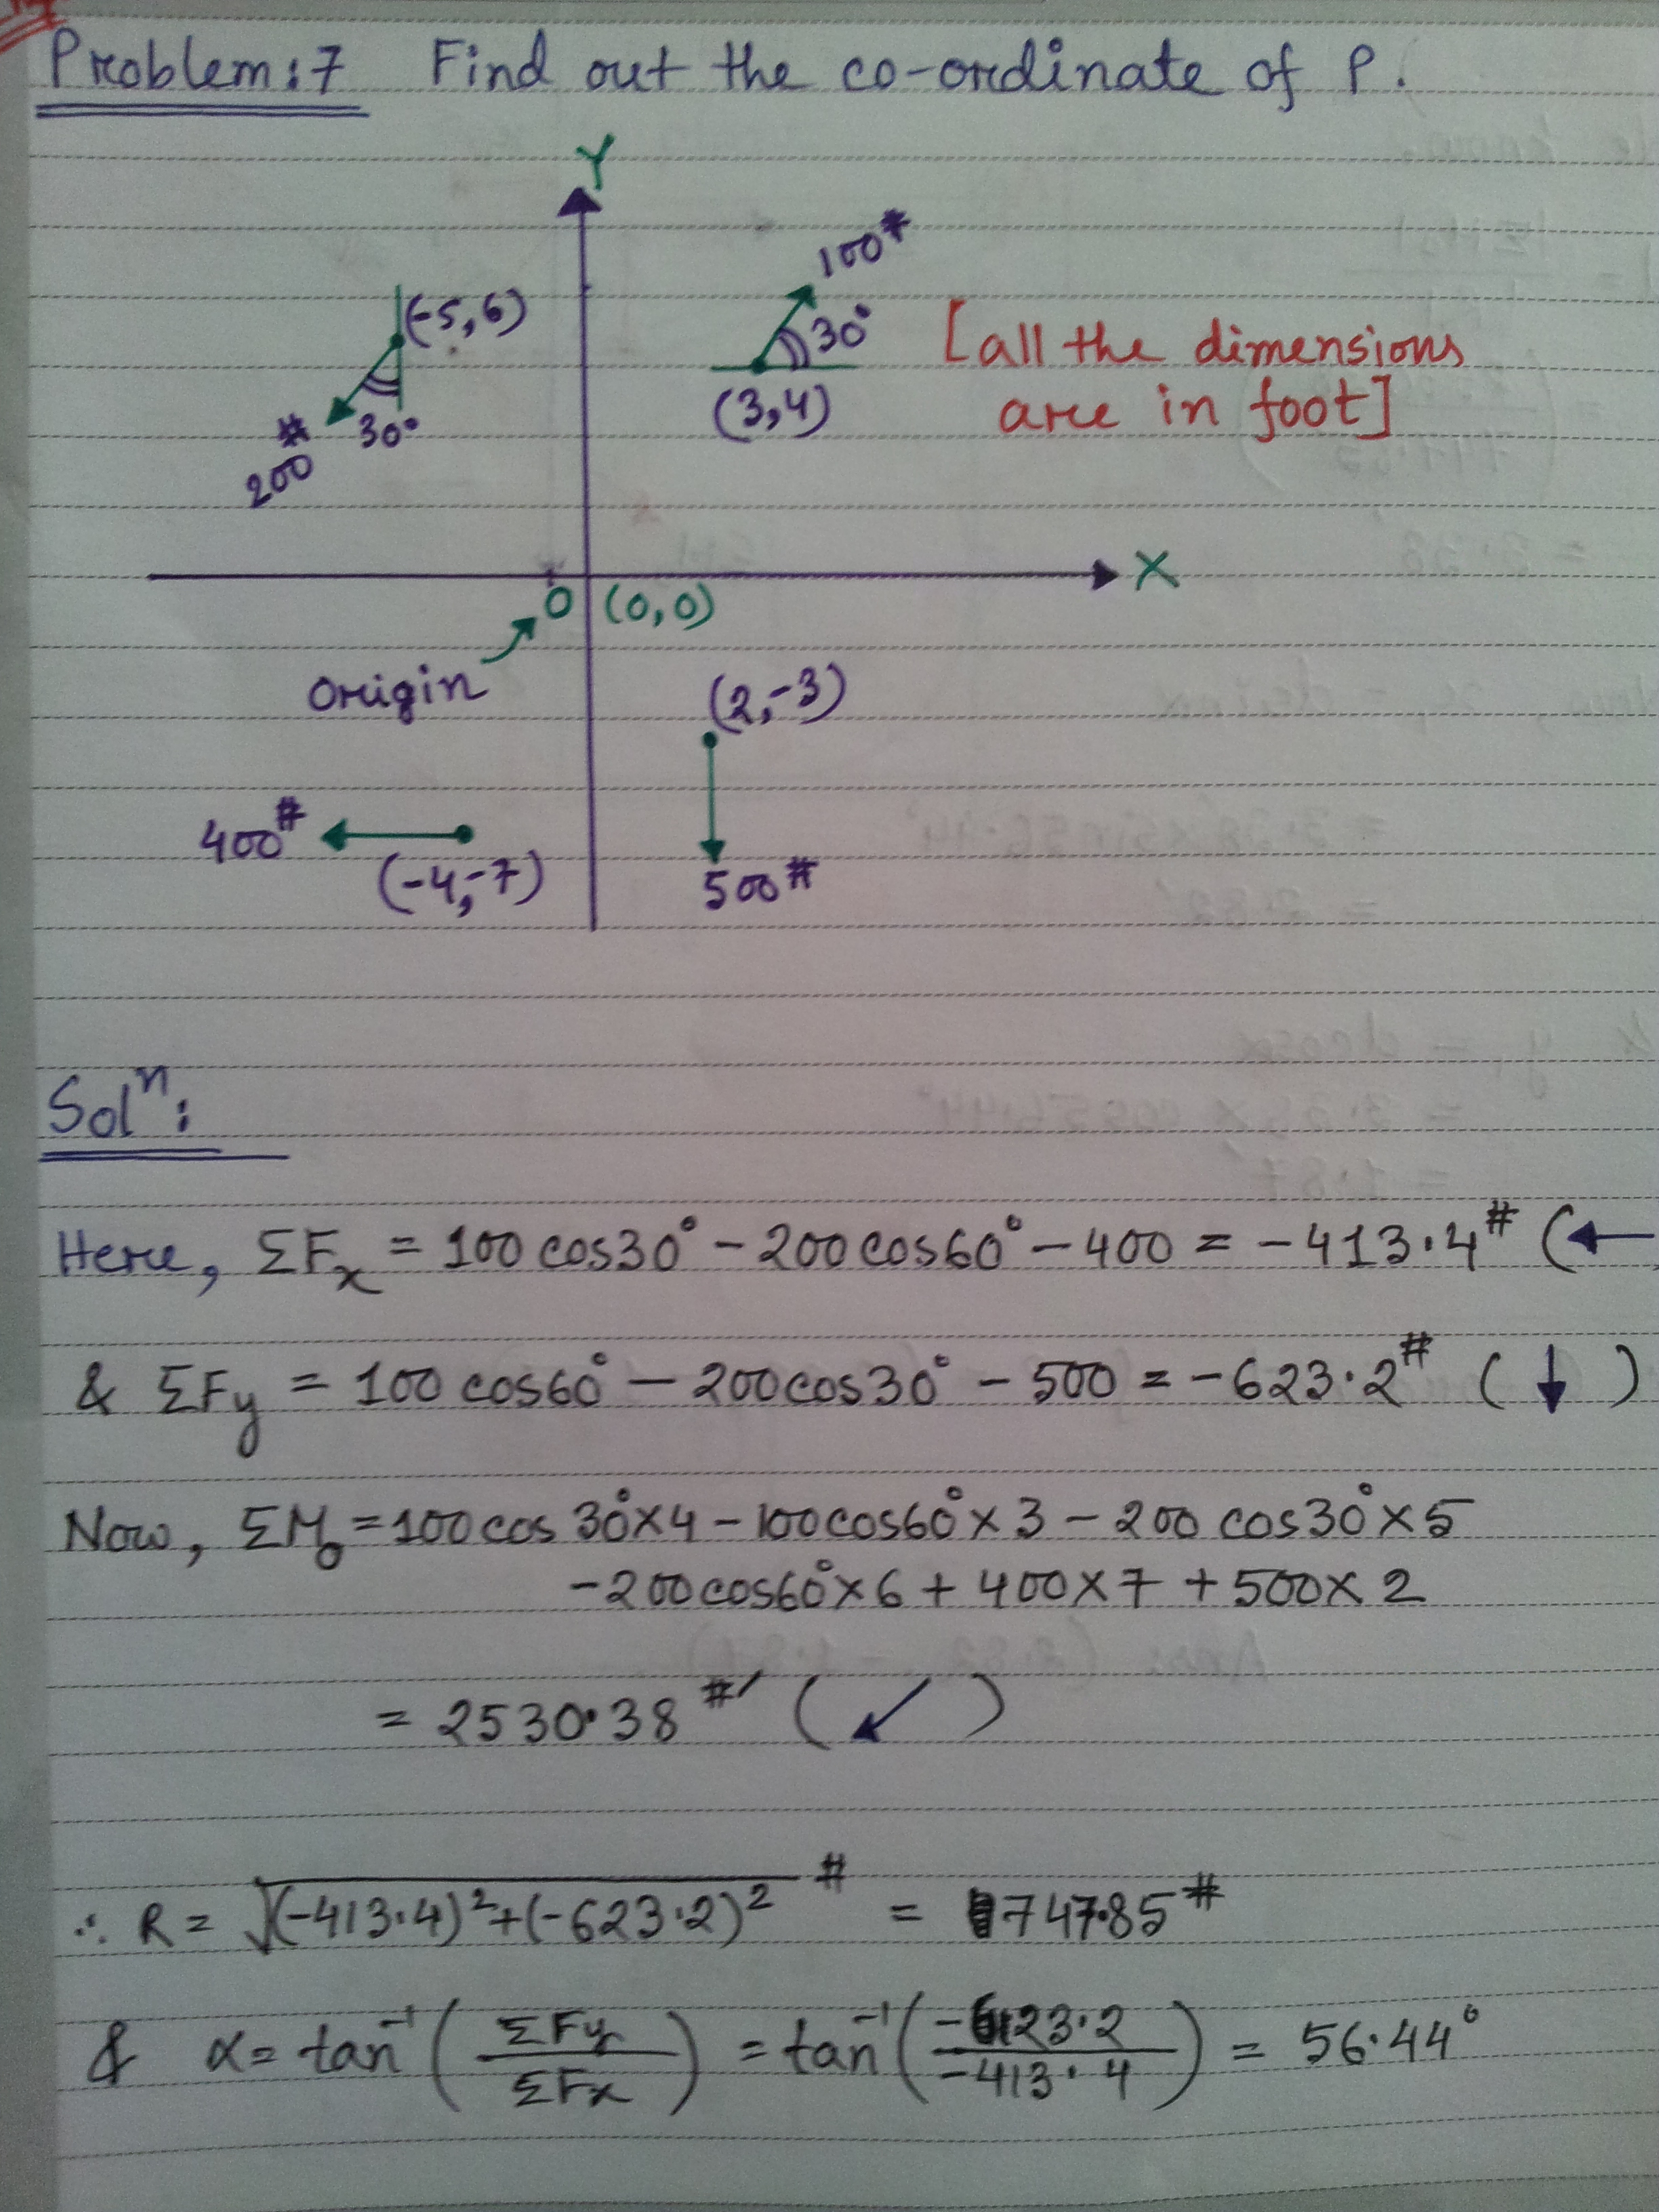 Problem:7 Find out the co-ordinate of P.
Y
100#
(-5,6)
30°
[all the dimensions
are in foot]
(3,4)
30°
200#
X
O (0,0)
Origin
(2,-3)
400#
(-4,-7)
500#
Solⁿ:
Here, ΣFx = 100 cos30° - 200 cos60° - 400 = -413.4# (←
& ΣFy = 100 cos60° - 200 cos30° - 500 = -623.2# (↓)
Now, ΣMo = 100 cos 30°×4 - 100 cos60°×3 - 200 cos30°×5
-200 cos60°×6 + 400×7 + 500×2
= 2530.38#' (↙)
∴ R = √(-413.4)²+(-623.2)² # = 747.85#
& α = tan⁻¹(ΣFy/ΣFx) = tan⁻¹(-623.2/-413.4) = 56.44°